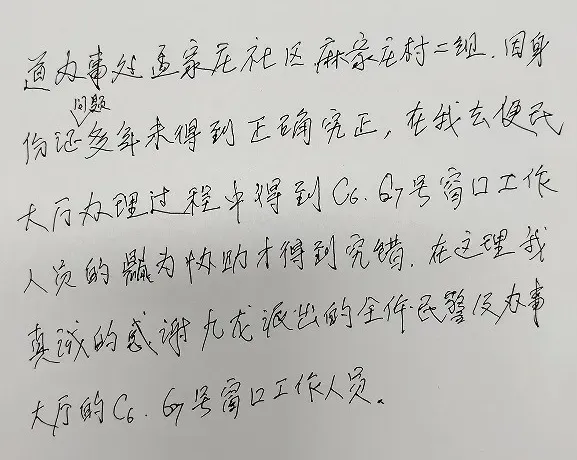 道办事处孟家庄社区麻家庄村二组.因身
问题
份证多年未得到正确究正,在我去便民
大厅办理过程中得到C6.G7号窗口工作
人员的鼎为协助才得到究错.在这理我
真诚的感谢九龙派出的全体民警及办事
大厅的C6.G7号窗口工作人员.